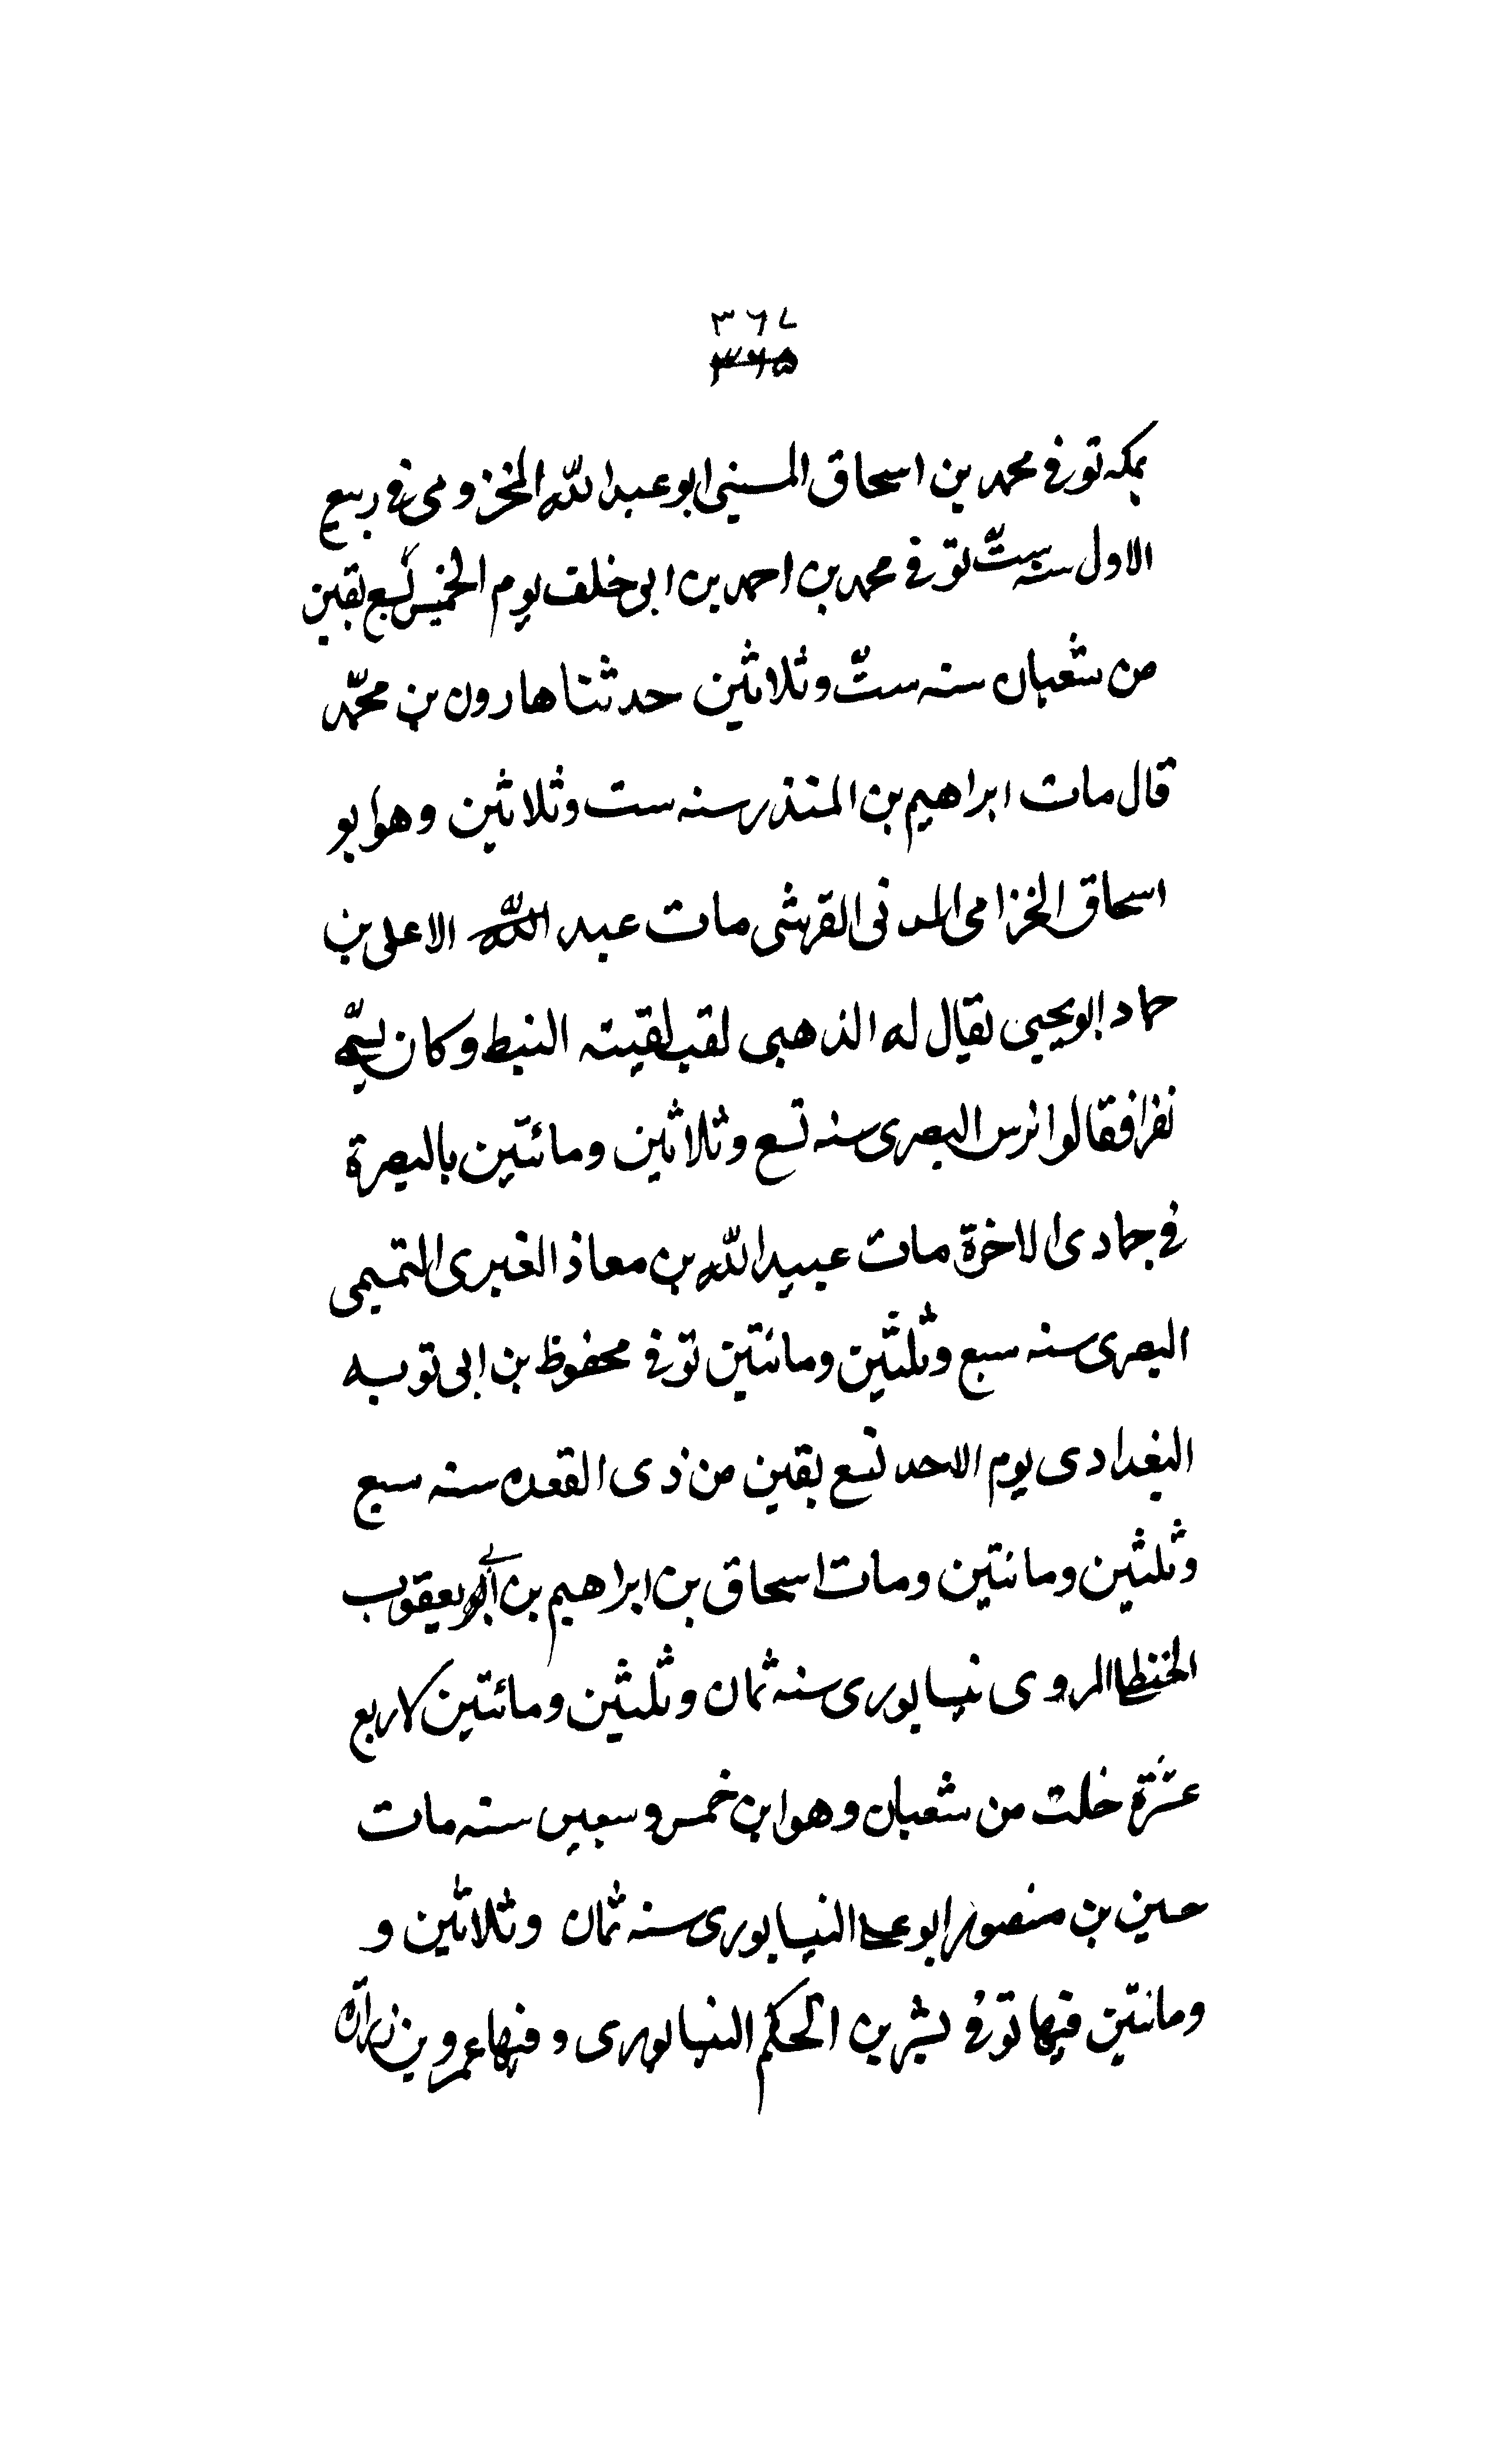 ٣٦٧
٣٦٥
بمكه توفى محمد بن اسحاق المسيبى ابو عبدالله المخزومى فى ربيع
الاول سنه ستّ توفى محمد بن احمد بن ابى خلف يوم الخميس لسبع بقين
من شعبان سنه ستّ وثلاثين حدثنا هارون بن محمّد
قال مات ابراهيم بن المنذر سنه ست وثلاثين وهو ابو
اسحاق الخزامى المدنى القرشى مات عبد الله الاعلى بن
حماد ابو يحيى يقال له الذهبى لقب لقبته النبط وكان يسمّى
نفرا فقالوا نرس البصرى سنه تسع وثلاثين ومائتين بالبصرة
فى جمادى الاخرة مات عبيدالله بن معاذ الغبرى التميمى
البصرى سنه سبع وثلثين ومائتين توفى محفوظ بن ابى توبه
البغدادى يوم الاحد لتسع بقين من ذى القعده سنه سبع
وثلثين ومائتين ومات اسحاق بن ابراهيم بن يعقوب
المروى نيسابورى سنه ثمان وثلثين ومائتين لاربع
عشرة خلت من شعبان وهو ابن خمس وسبعين سنه مات
حسين بن منصور ابو على النيسابورى سنه ثمان وثلاثين و
ومائتين فيها توفى بشر بن الحكم النيسابورى وفيها عمرو بن زرارة